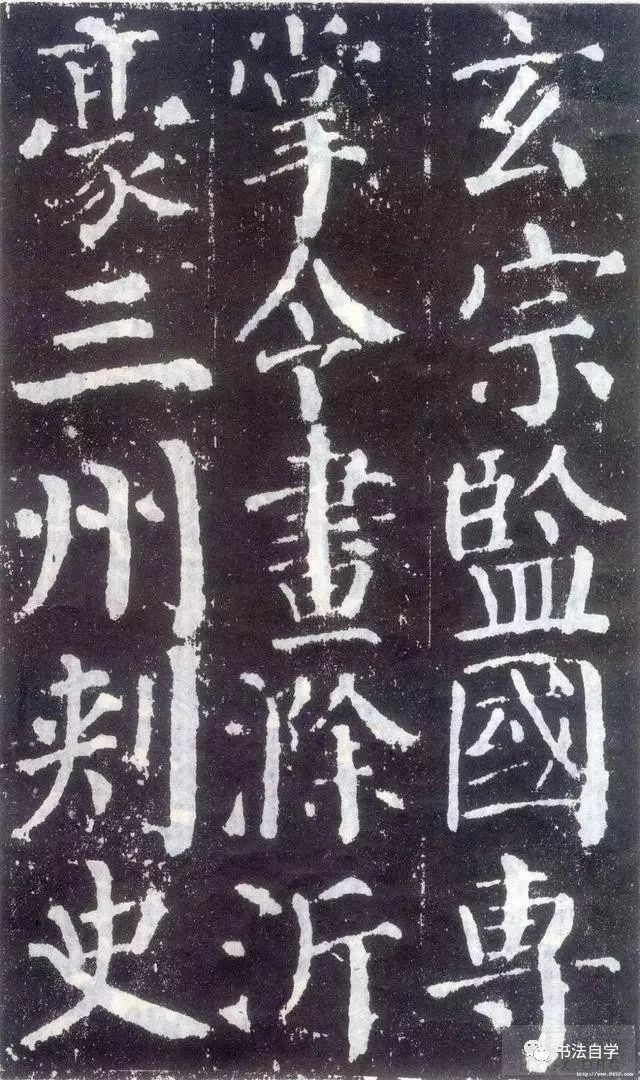 玄宗監國專
掌令畫滁沂
豪三州刺史
书法自学